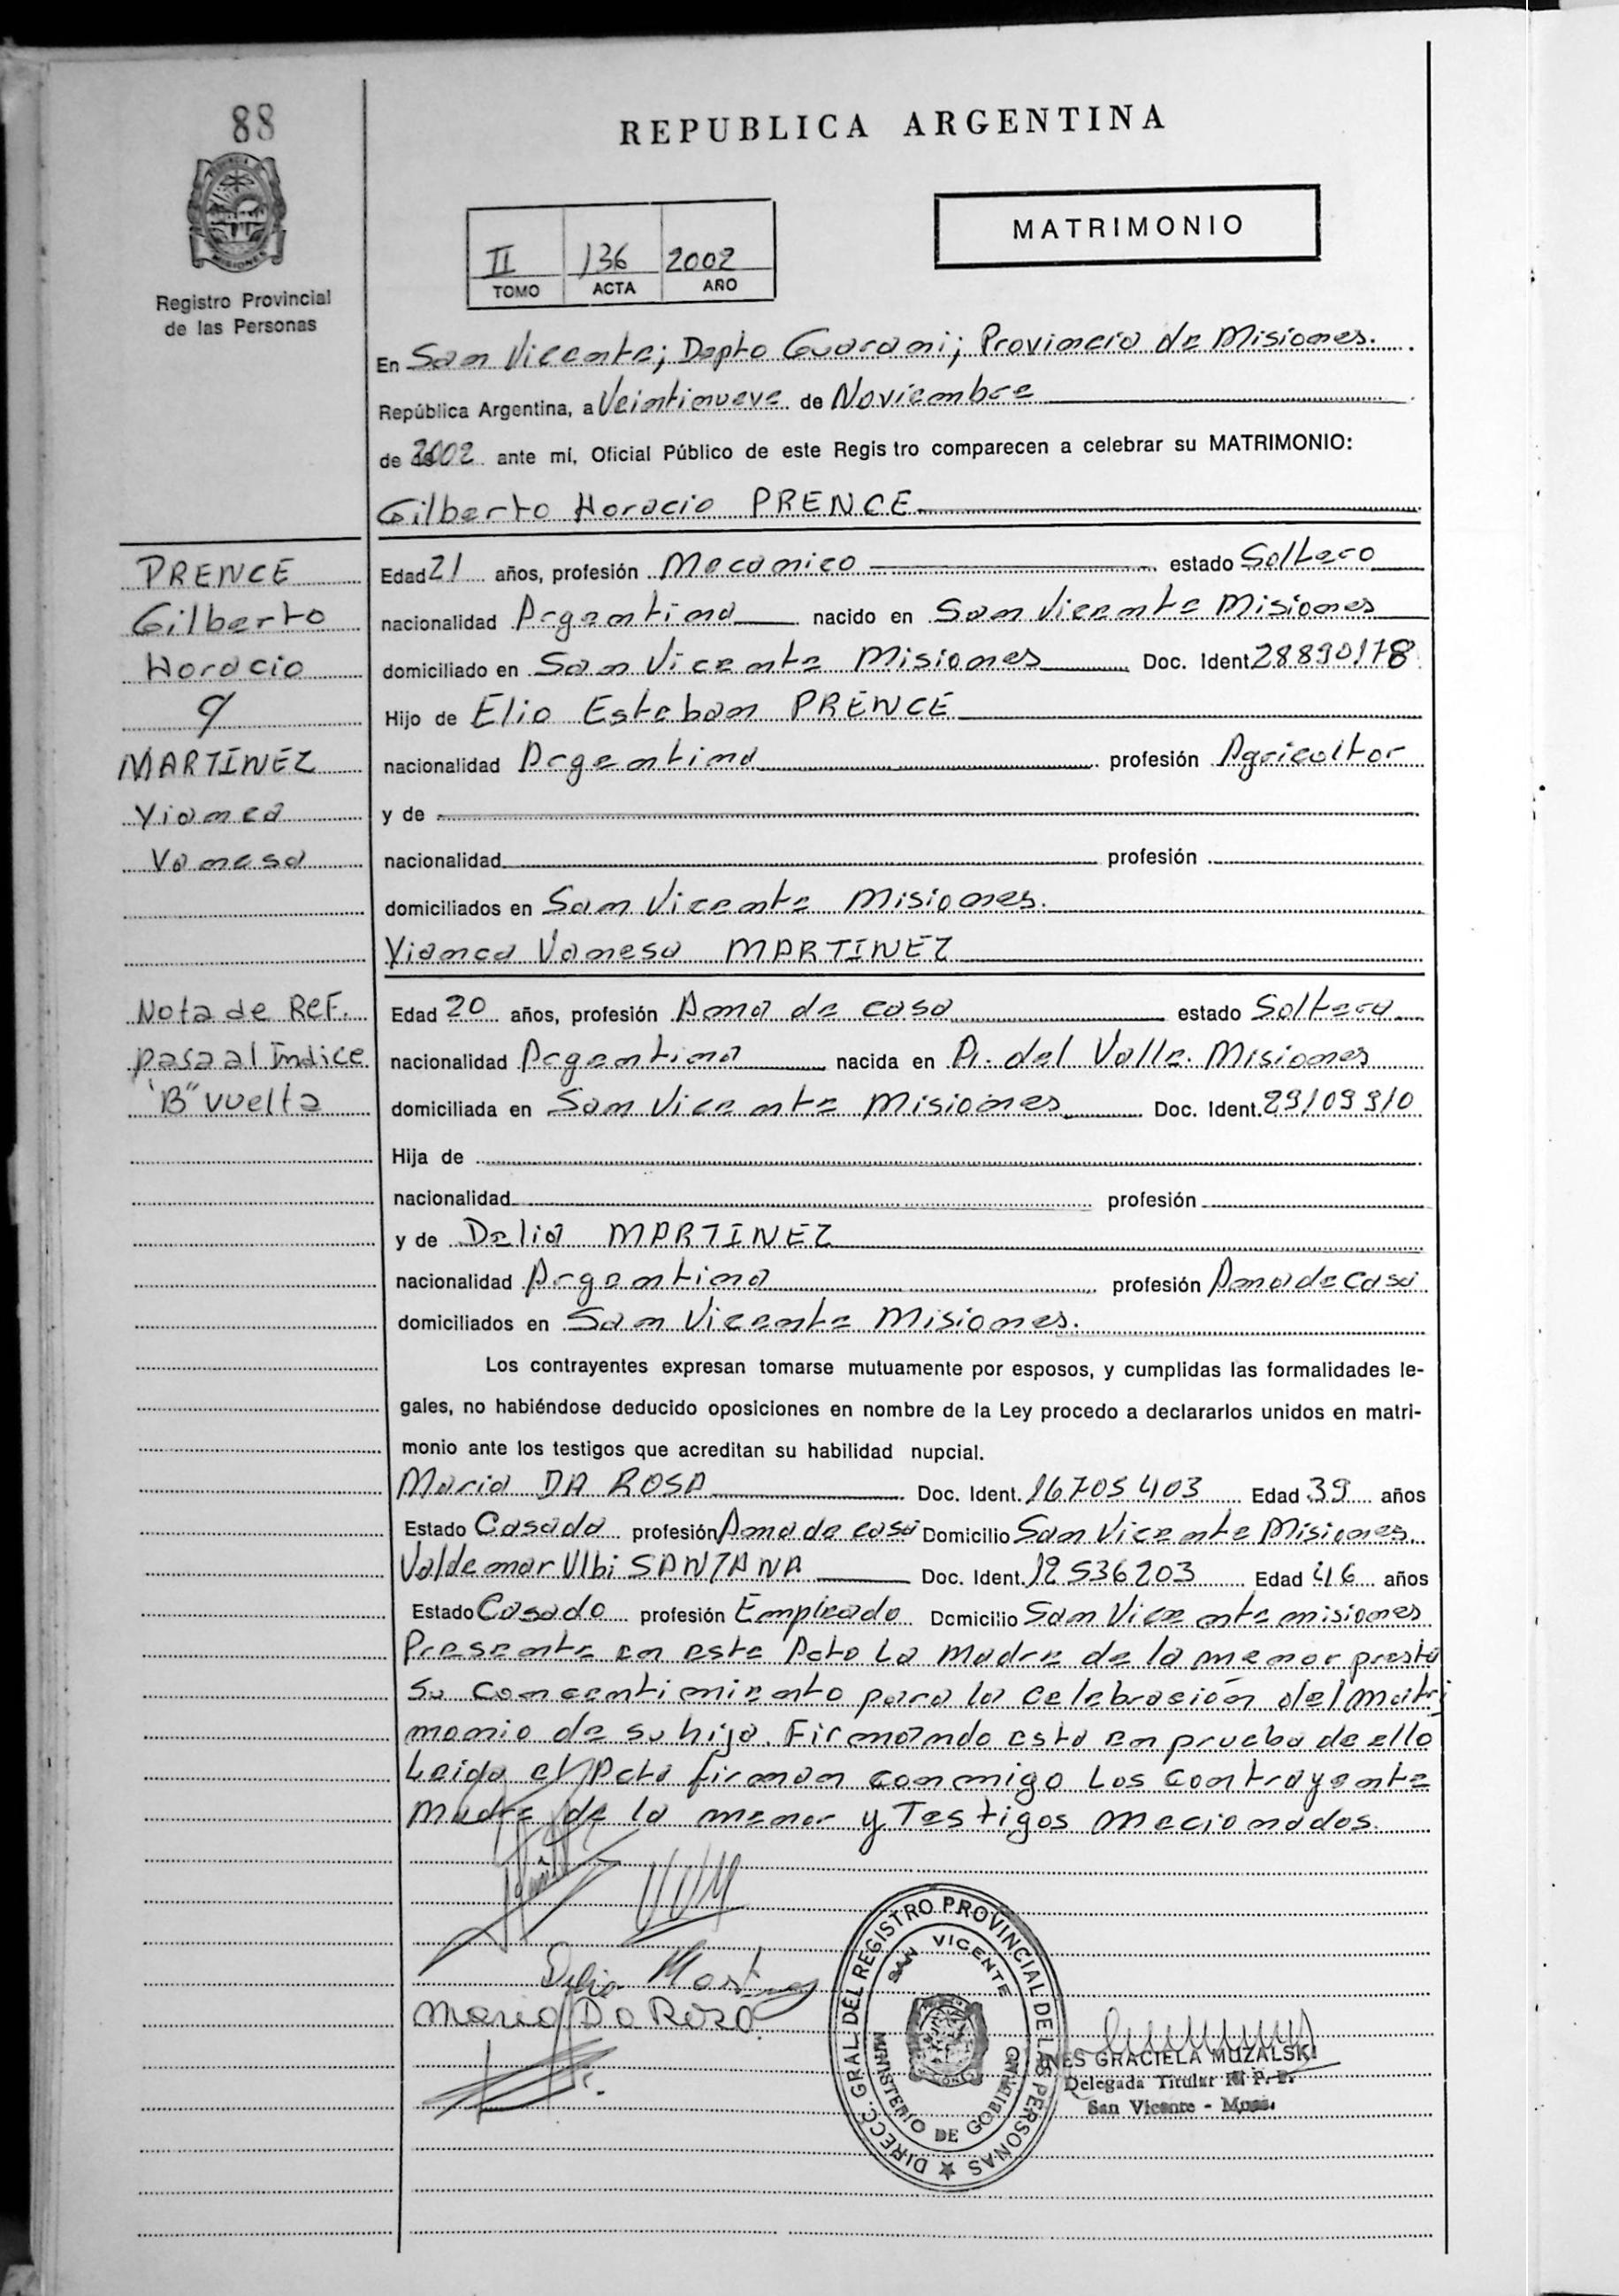 88
REPUBLICA ARGENTINA
MATRIMONIO
II 136 2002
TOMO ACTA AÑO
Registro Provincial
de las Personas
En San Vicente; Dapto Guarani; Provincia de Misiones.
República Argentina, a Veintinueve de Noviembre
de 2002 ante mí, Oficial Público de este Regis tro comparecen a celebrar su MATRIMONIO:
Gilberto Horacio PRENCE
PRENCE
Gilberto
Horacio
y
MARTÍNEZ
Yianca
Vanesa
Edad 21 años, profesión Mecanico estado Soltero
nacionalidad Argentina nacido en San Vicente Misiones
domiciliado en San Vicente Misiones Doc. Ident. 28890178
Hijo de Elio Esteban PRENCE
nacionalidad Argentina profesión Agricultor
y de
nacionalidad profesión
domiciliados en San Vicente Misiones.
Yianca Vanesa MARTINEZ
Nota de Ref.
pasa al Índice
"B" vuelta
Edad 20 años, profesión Ama de casa estado Soltera
nacionalidad Argentina nacida en A. del Valle Misiones
domiciliada en San Vicente Misiones Doc. Ident. 29109910
Hija de
nacionalidad profesión
y de Delia MARTINEZ
nacionalidad Argentina profesión Ama de Casa
domiciliados en San Vicente Misiones.
Los contrayentes expresan tomarse mutuamente por esposos, y cumplidas las formalidades le-
gales, no habiéndose deducido oposiciones en nombre de la Ley procedo a declararlos unidos en matri-
monio ante los testigos que acreditan su habilidad nupcial.
Maria DA ROSA Doc. Ident. 16705403 Edad 39 años
Estado Casada profesión Ama de casa Domicilio San Vicente Misiones
Valdemar Ulbi SANTANA Doc. Ident. 12536203 Edad 46 años
Estado Casado profesión Empleado Domicilio San Vicente misiones
Presente en este Acto La Madre de la menor presta
Su concentimiento para la celebrasión del Matri
monio de su hija. Firmando esta en prueba de ello
Leida el Acta firman conmigo Los Contrayente
Madre de la menor y Testigos mecionados.
Delia Martinez
Maria Da Rosa
DIRECC. GRAL. DEL REGISTRO PROVINCIAL DE LAS PERSONAS
SAN VICENTE
MINISTERIO DE GOBIERNO
INES GRACIELA MUZALSKI
Delegada Titular R. P. P.
San Vicente - Mnes.